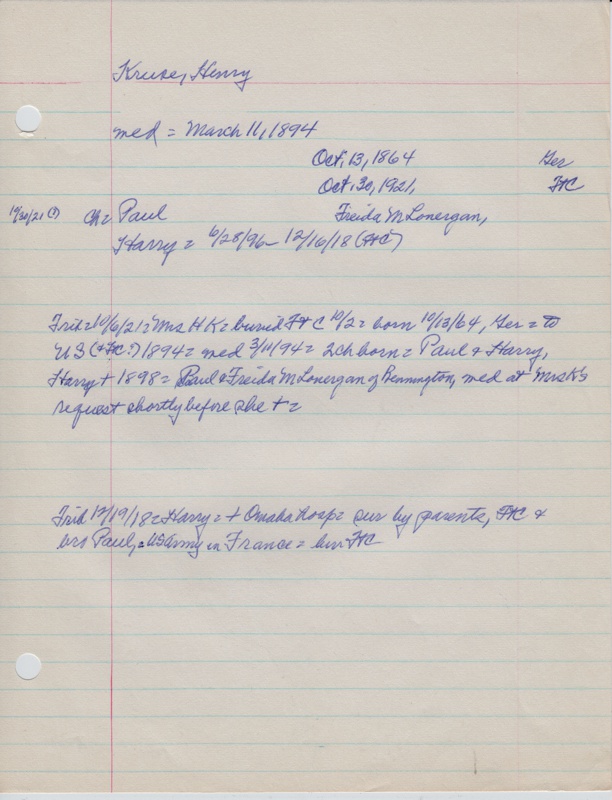 Kruse, Henry
med = March 11, 1894
Oct. 13, 1864 Ger
Oct. 30, 1921, FtC
10/30/21 (?) Ch = Paul Freida M Lonergan,
Harry = 6/28/96 - 12/16/18 (FtC)
Frid = 10/6/21 = Mrs HK = buried FtC 10/2 = born 10/13/64, Ger = to
US (+ FtC?) 1894 = med 3/11/94 = 2 ch born = Paul & Harry,
Harry + 1898 = Paul & Freida M Lonergan of Bennington, med at Mrs K's
request shortly before she + =
Frid 12/19/18 = Harry = + Omaha hosp = sur by parents, FtC &
bro Paul, = US army in France = bur FtC